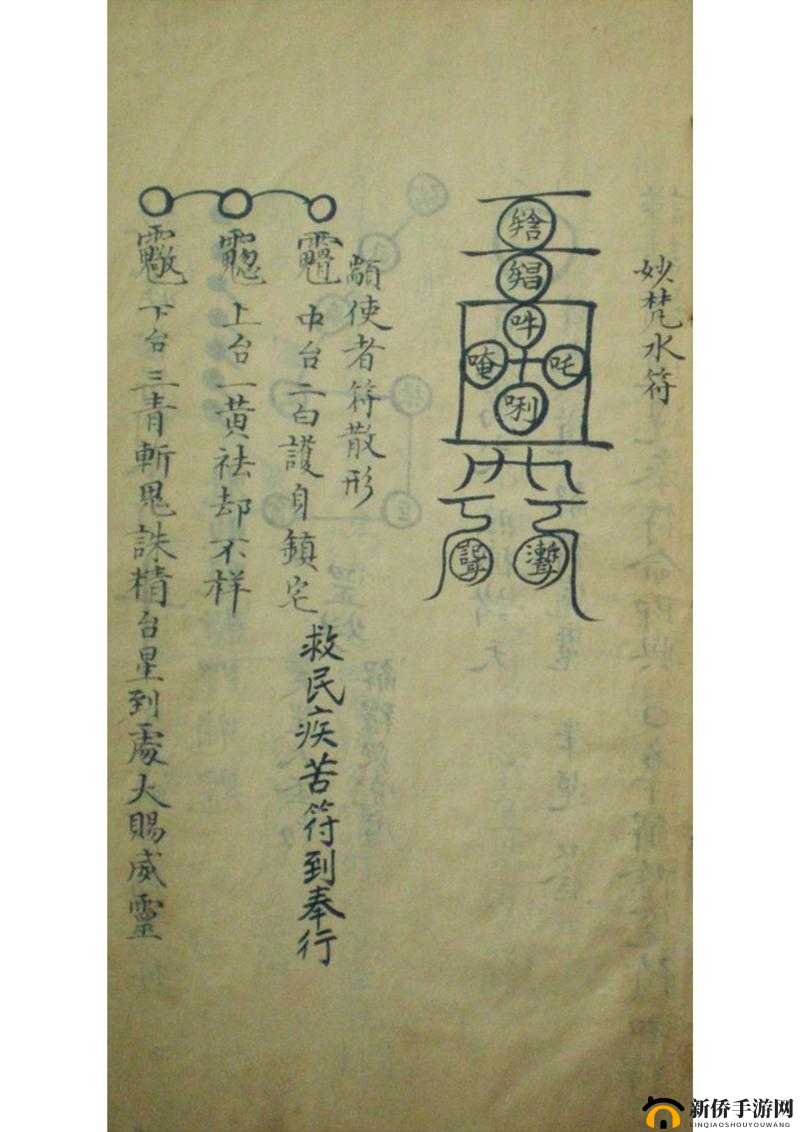 妙梵水符
吽
唵 吒
唎
使者符散形
中台二白護自鎮宅
救民疾苦符到奉行
上台一黄祛却不样
下台三青斬鬼誅精台星到處大賜威靈
新侨手游网
XINQIAOSHOUYOUWANG